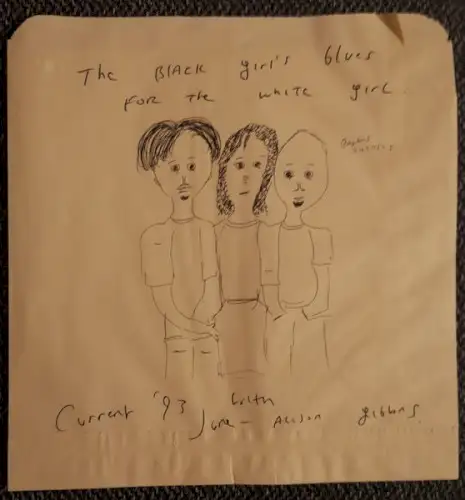 The BLACK girl's blues
FOR THE WHITE girl.
Current '93 with
June - ALISON gibbons.